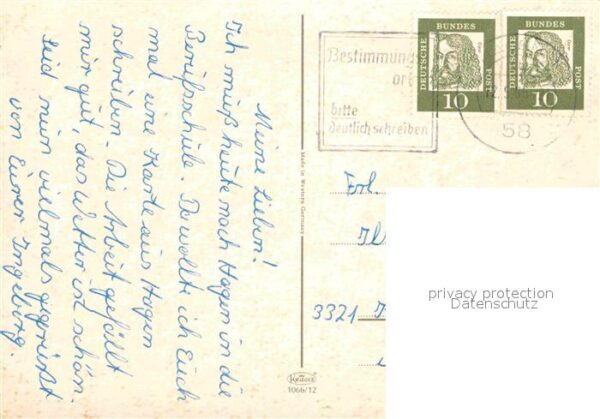 Meine Lieben!
Ich muß heute nach Hagen in die
Berufsschule. Da wollte ich Euch
mal eine Karte aus Hagen
schreiben. Die Arbeit gefällt
mir gut, das Wetter ist schön.
Seid nun vielmals gegrüßt
von Eurer Ingeborg.
Made in Western Germany
Bestimmungs
or
bitte
deutlich schreiben
DEUTSCHE BUNDES POST
10
DEUTSCHE BUNDES POST
10
58
Frl.
3321
Krüger
1066/12
privacy protection
Datenschutz